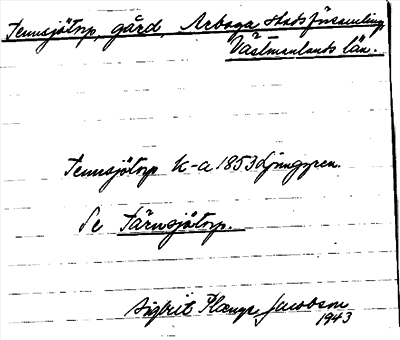 Tennsjötorp, gård, Arboga stadsförsamling,
Västmanlands län.
Tennsjötorp K-a 1853 Ljunggren.
Se Tärnsjötorp.
Sigbrit Plænge Jacobson
1943